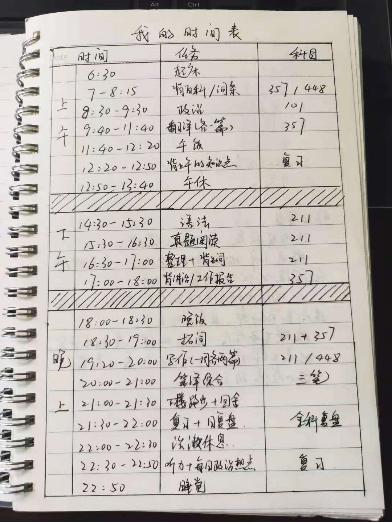 我的时间表
时间 任务 科目
上午
6:30 起床
7-8:15 背百科/词条 357/448
8:30-9:30 政治 101
9:40-11:40 翻译(各一篇) 357
11:40-12:20 午饭
12:20-12:50 背上午的知识点 复习
12:50-13:40 午休
下午
14:30-15:30 语法 211
15:30-16:30 真题阅读 211
16:30-17:00 整理+背词 211
17:00-18:00 背政治/工作报告 357
晚上
18:00-18:30 晚饭
18:30-19:00 211+357
19:20-20:00 写作(一周各两篇) 211/448
20:00-21:00 三笔
21:00-21:30 下楼跑步+回舍
21:30-22:00 复习+日复盘 全科复盘
22:00-22:30 洗漱休息
22:30-22:50 听力+每日政治热点 复习
22:50 睡觉